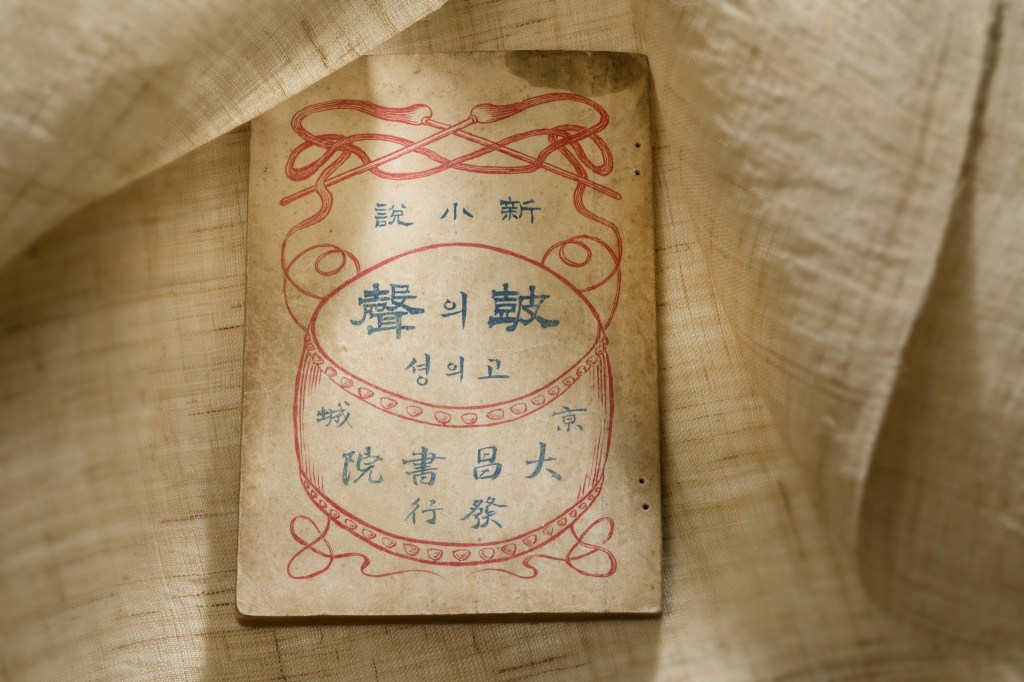 新小說
皷의聲
고의셩
京城
大昌書院
發行